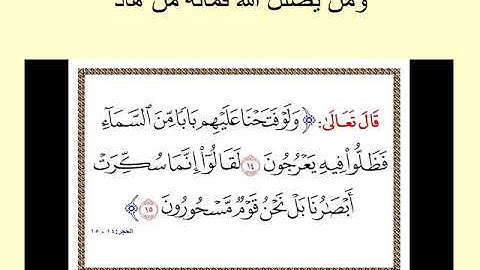 ومن يضلل الله فماله من هاد
قَالَ تَعَالَىٰ: ﴿ وَلَوْ فَتَحْنَا عَلَيْهِم بَابًا مِّنَ ٱلسَّمَآءِ
فَظَلُّوا۟ فِيهِ يَعْرُجُونَ ١٤ لَقَالُوٓا۟ إِنَّمَا سُكِّرَتْ
أَبْصَٰرُنَا بَلْ نَحْنُ قَوْمٌ مَّسْحُورُونَ ١٥ ﴾
الحجر: ١٤ - ١٥